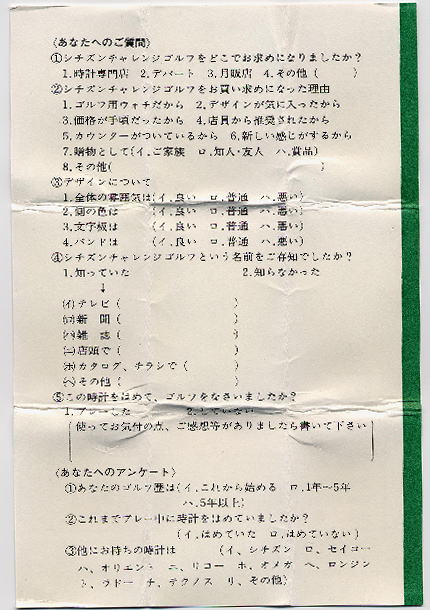 〈あなたへのご質問〉
①シチズンチャレンジゴルフをどこでお求めになりましたか?
1.時計専門店 2.デパート 3.月販店 4.その他( )
②シチズンチャレンジゴルフをお買い求めになった理由
1.ゴルフ用ウォチだから 2.デザインが気に入ったから
3.価格が手頃だったから 4.店員から推奨されたから
5.カウンターがついているから 6.新しい感じがするから
7.贈物として(イ.ご家族 ロ.知人・友人 ハ.賞品)
8.その他( )
③デザインについて
1.全体の雰囲気は(イ.良い ロ.普通 ハ.悪い)
2.側の色は (イ.良い ロ.普通 ハ.悪い)
3.文字板は (イ.良い ロ.普通 ハ.悪い)
4.バンドは (イ.良い ロ.普通 ハ.悪い)
④シチズンチャレンジゴルフという名前をご存知でしたか?
1.知っていた 2.知らなかった
↓
(イ)テレビ( )
(ロ)新 聞( )
(ハ)雑 誌( )
(ニ)店頭で( )
(ホ)カタログ、チラシで( )
(ヘ)その他( )
⑤この時計をはめて、ゴルフをなさいましたか?
1.プレーした 2.していない
(使ってお気付の点、ご感想等がありましたら書いて下さい)
〈あなたへのアンケート〉
①あなたのゴルフ歴は(イ.これから始める ロ.1年〜5年
ハ.5年以上)
②これまでプレー中に時計をはめていましたか?
(イ.はめていた ロ.はめていない)
③他にお持ちの時計は (イ、シチズン ロ、セイコー
ハ、オリエント ニ、リコー ホ、オメガ ヘ、ロンジン
ト、ラドー チ、テクノス リ、その他)